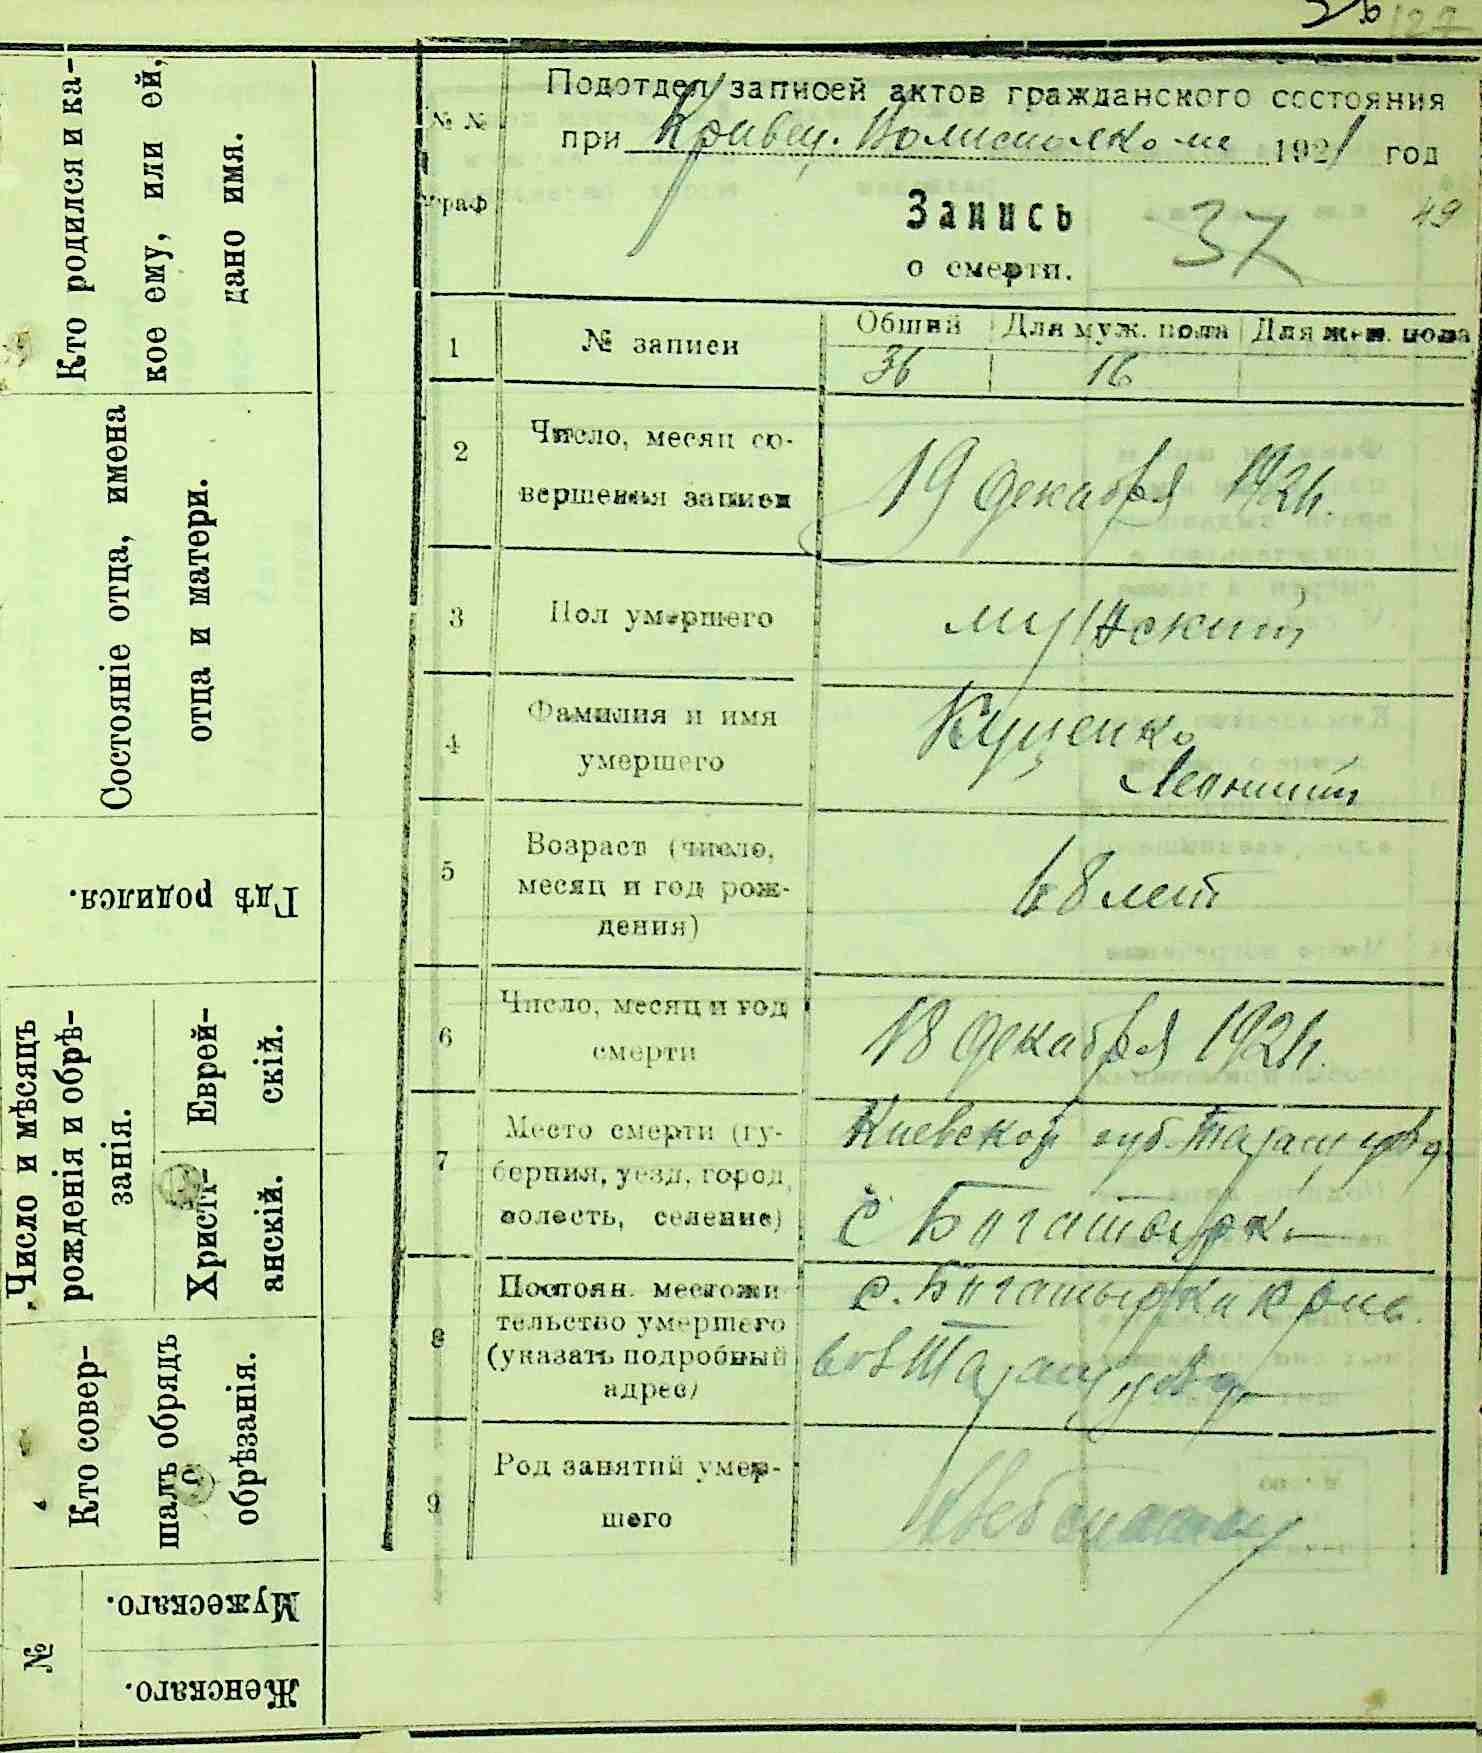 Кто родился и ка-
кое ему, или ей,
дано имя.
Состояніе отца, имена
отца и матери.
Гдѣ родился.
Число и мѣсяцъ
рожденія и обрѣ-
занія.
Еврей-
скій.
Христі-
анскій.
Кто совер-
шалъ обрядъ
обрѣзанія.
№
Мужескаго.
Женскаго.
Подотдел записей актов гражданского состояния
при Кривец. Волисполкоме 1921 год
№ № граф
Запись 37 49
о смерти.
1 № записи Общий Для муж. пола Для жен. пола
36 16
2 Число, месяц со-
вершения записи
19 декабря 1921г.
3 Пол умершего мужский
4 Фамилия и имя
умершего
Куценко
Леонтий
5 Возраст (число,
месяц и год рож-
дения)
68 лет
6 Число, месяц и год
смерти
18 декабря 1921г.
7 Место смерти (гу-
берния, уезд, город,
волость, селение)
Киевской губ. Таращ уезд
с Богатырка
8 Постоян. местожи
тельство умершего
(указать подробный
адрес)
с. Богатырка Крив.
вол Таращ уезд
9 Род занятий умер-
шего
Хлебопашец